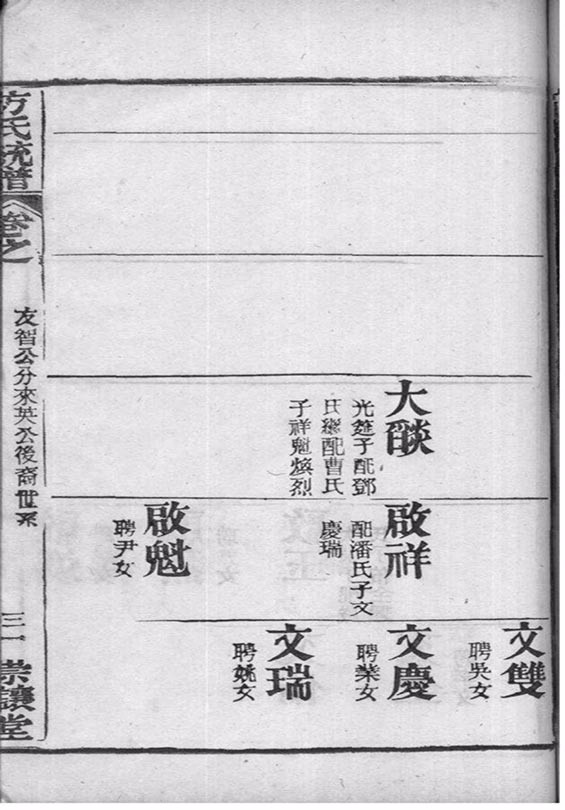 大燄
光筵子配鄧
氏繼配曹氏
子祥魁煥烈
啟祥
配潘氏子文
慶瑞
啟魁
聘尹女
文雙
聘吳女
文慶
聘葉女
文瑞
聘姚女
方氏統譜
卷之
友智公分來英公後裔世系
三一
崇讓堂